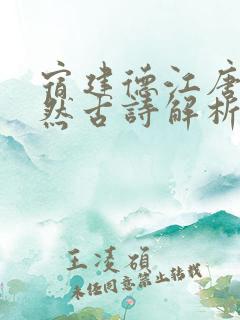 宿建德江唐
然古詩解析
王凌碩
未经同意禁止转载